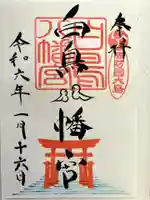 奉拝
白鳥八幡宮
令和六年一月十六日